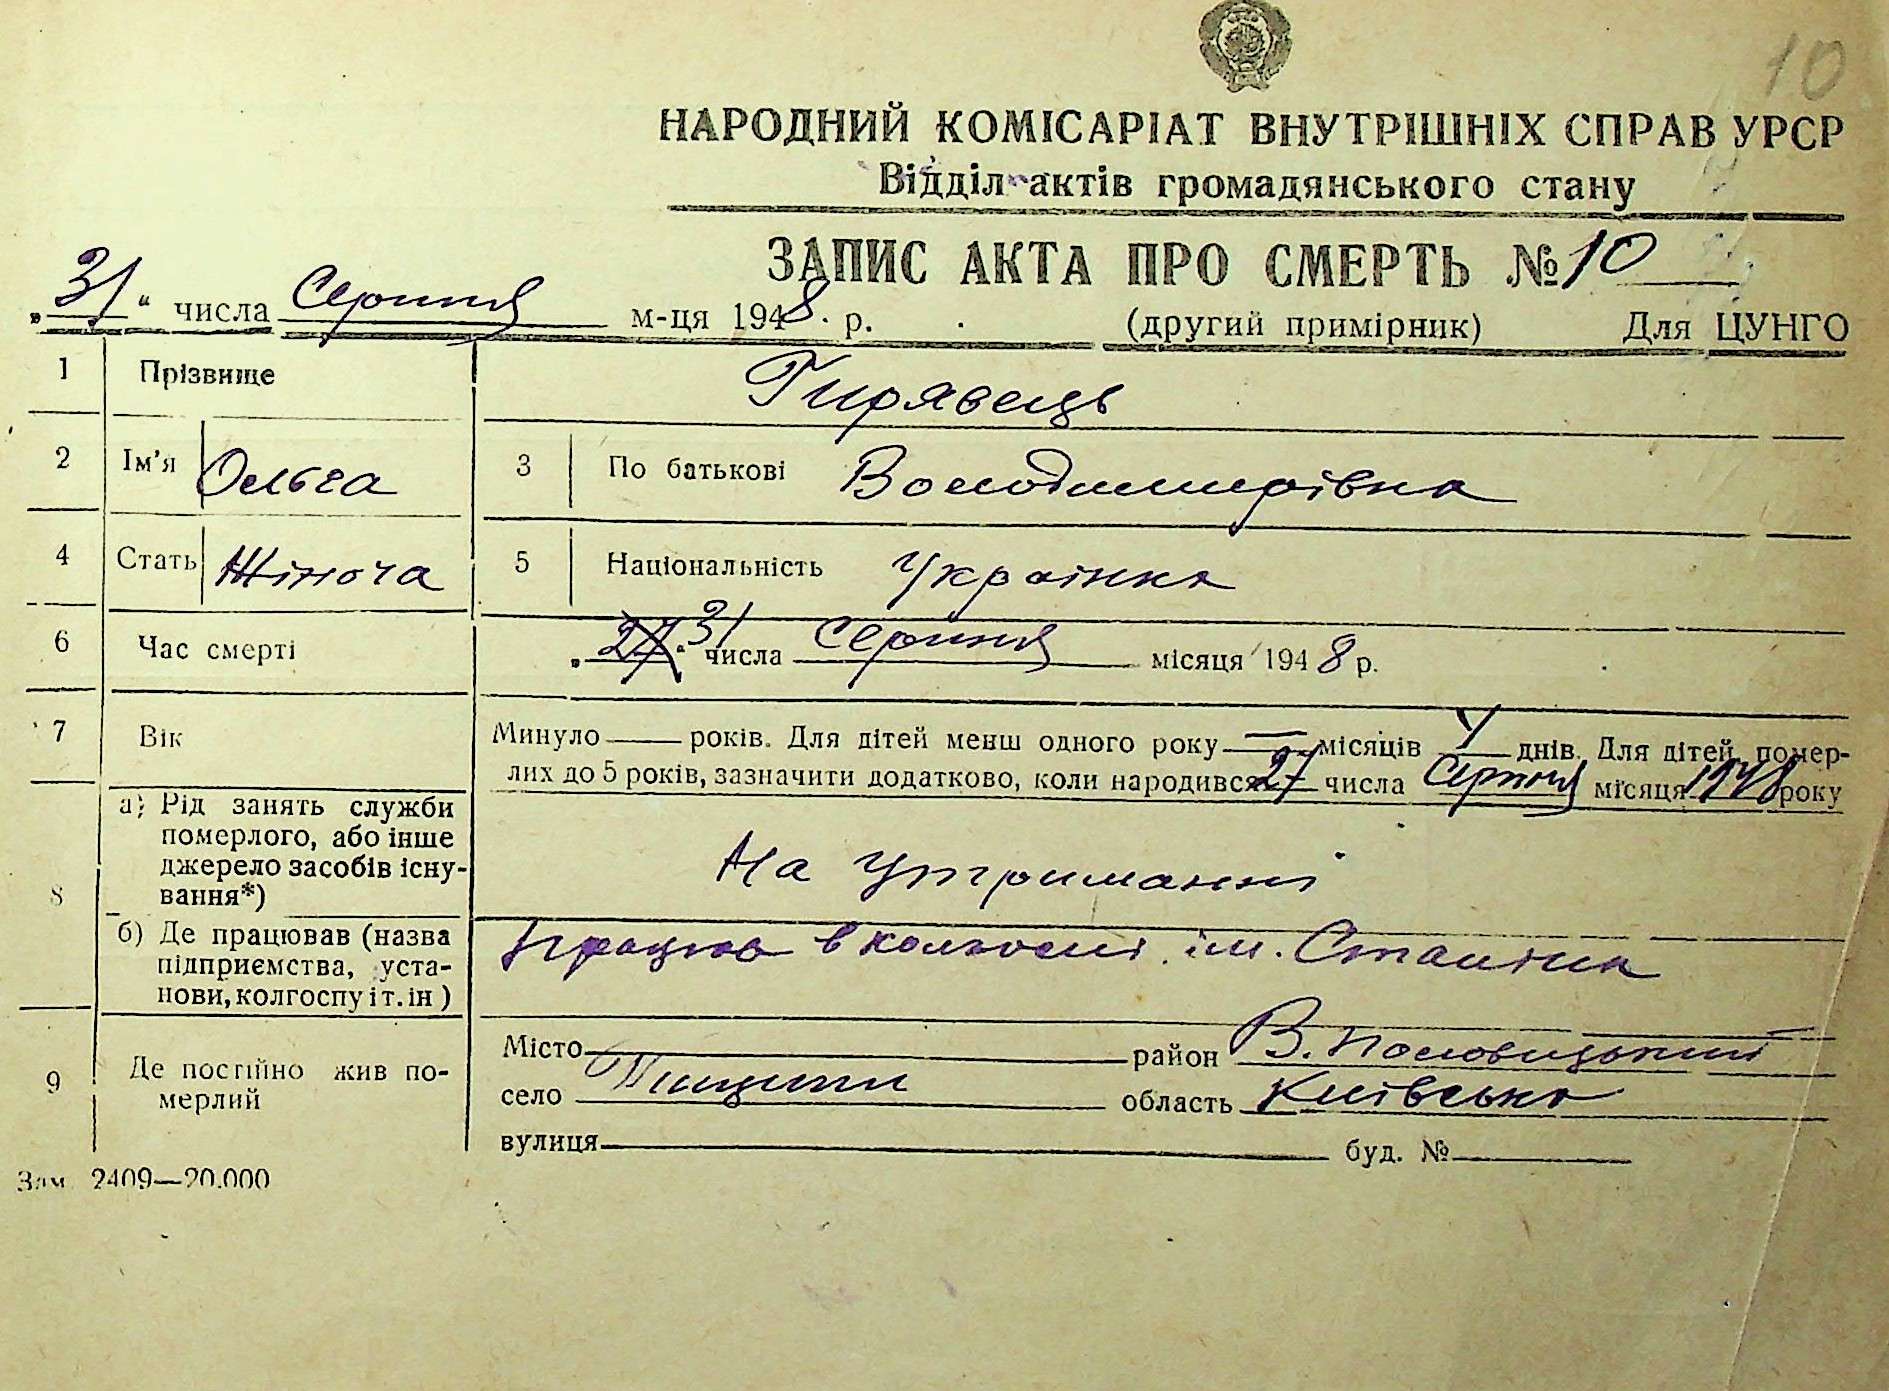 10
НАРОДНИЙ КОМІСАРІАТ ВНУТРІШНІХ СПРАВ УРСР
Відділ актів громадянського стану
ЗАПИС АКТА ПРО СМЕРТЬ № 10
„31“ числа Серпня м-ця 1948 р. (другий примірник) Для ЦУНГО
1 Прізвище Гирявець
2 Ім'я Ольга 3 По батькові Володимирівна
4 Стать Жіноча 5 Національність Українка
6 Час смерті „27“ 31 числа Серпня місяця 1948 р.
7 Вік Минуло — років. Для дітей менш одного року — місяців 4 днів. Для дітей, помер-
лих до 5 років, зазначити додатково, коли народився 27 числа Серпня місяця 1948 року
8 а) Рід занять служби
померлого, або інше
джерело засобів існу-
вання*)
На утриманні
б) Де працював (назва
підприємства, уста-
нови, колгоспу і т. ін)
Працює в колгоспі ім. Сталіна
9 Де постійно жив по-
мерлий
Місто — район В. Половецький
село область Київська
вулиця — буд. №
Зам. 2409—20.000